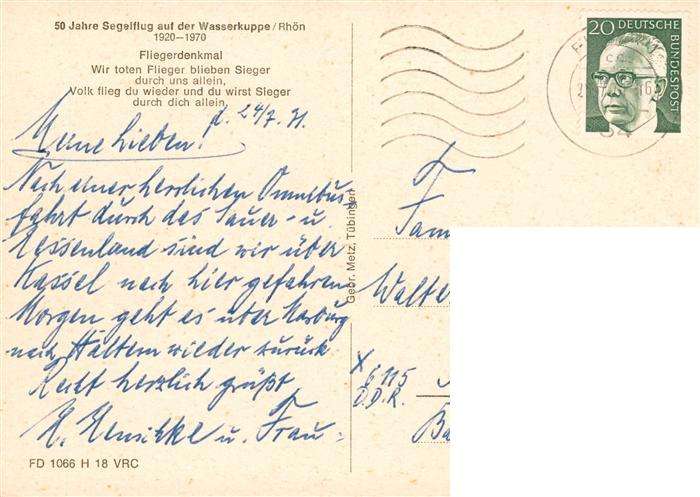 50 Jahre Segelflug auf der Wasserkuppe/Rhön
1920--1970
Fliegerdenkmal
Wir toten Flieger blieben Sieger
durch uns allein.
Volk flieg du wieder und du wirst Sieger
durch dich allein.
d. 24/7. 71.
Meine Lieben!
Nach einer herrlichen Omnibus-
fahrt durch das Sauer- u.
Hessenland sind wir über
Kassel nach hier gefahren
Morgen geht es über Marburg
nach Haltern wieder zurück.
Recht herzlich grüßt
H. Henschke u. Frau
FD 1066 H 18 VRC
Gebr. Metz, Tübingen
20 DEUTSCHE
BUNDESPOST
Fam
Walter
X 6115
D.D.R.